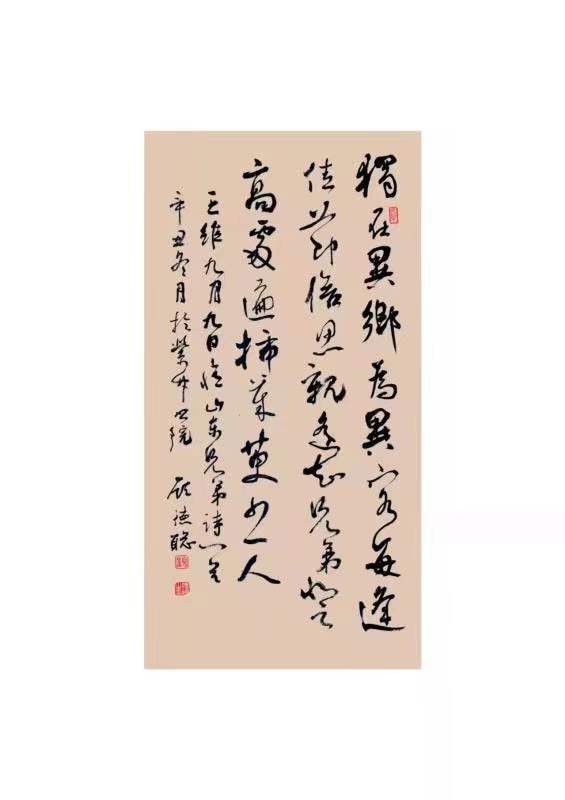 獨在異鄉為異客每逢
佳節倍思親遙知兄弟登
高處遍插茱萸少一人
王維九月九日憶山东兄弟詩一首
辛丑冬月於紫竹书院 顾德聪